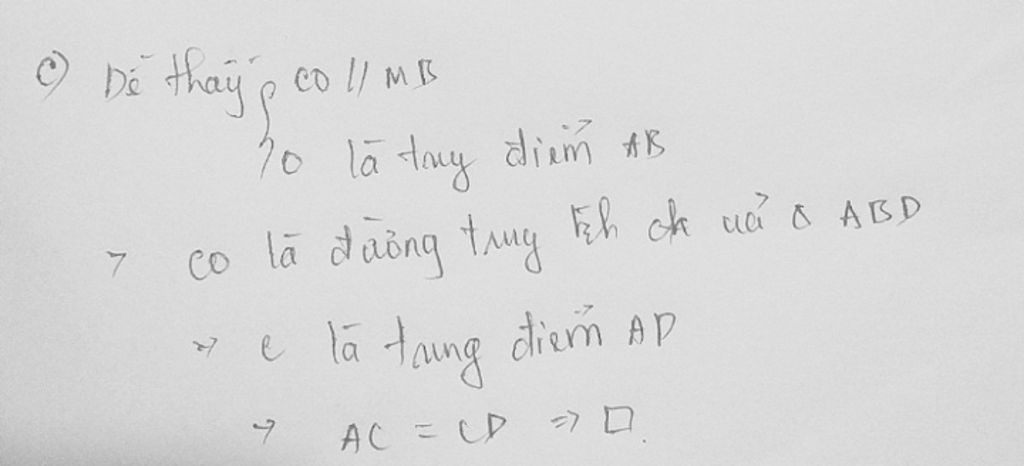 c) Dễ thấy { CO // MB
O là trung điểm AB
→ CO là đường trung bình của Δ ABD
→ C là trung điểm AD
→ AC = CD => □.